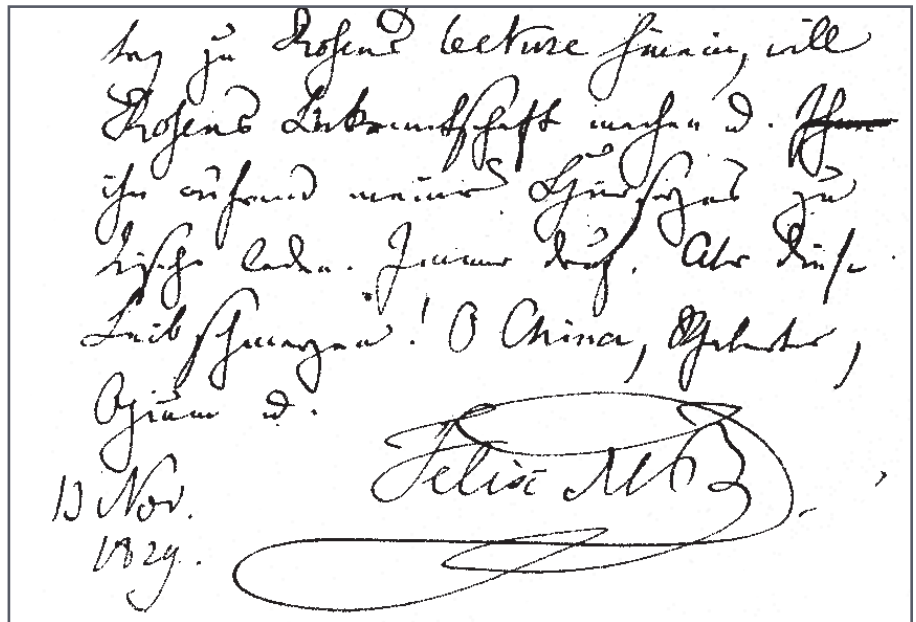 tag zu Rosens lecture hinein, will
Rosens Bekanntschaft machen u. Ihm
ihn während meines zu
Tische laden. Immer durch. Aber diese
Leibschmerzen! O China, Rhabarber,
Opium u.
Felix MB
13 Nov.
1829.